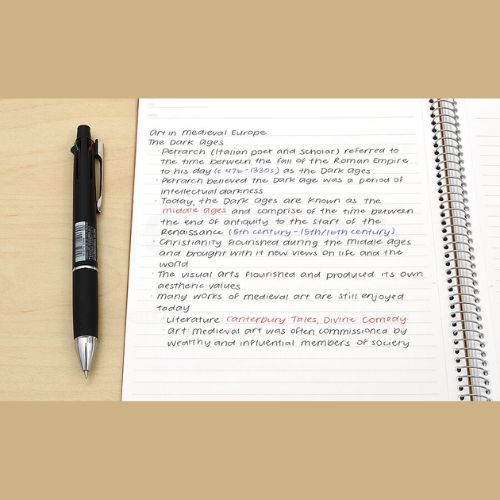 Art in Medieval Europe
The Dark Ages
· Petrarch (Italian poet and scholar) referred to
the time between the fall of the Roman Empire
to his day (c 476-1330s) as the Dark Ages
· Petrarch believed the Dark Age was a period of
intellectual darkness
· Today, the Dark Ages are known as the
middle ages and comprise of the time between
the end of antiquity to the start of the
Renaissance (5th century - 15th/16th century)
· Christianity flourished during the Middle Ages
and brought with it new views on life and the
world
· The visual arts flourished and produced its own
aesthetic values
· Many works of medieval art are still enjoyed
today
· Literature: Canterbury Tales, Divine Comedy
Art: medieval art was often commissioned by
wealthy and influential members of society